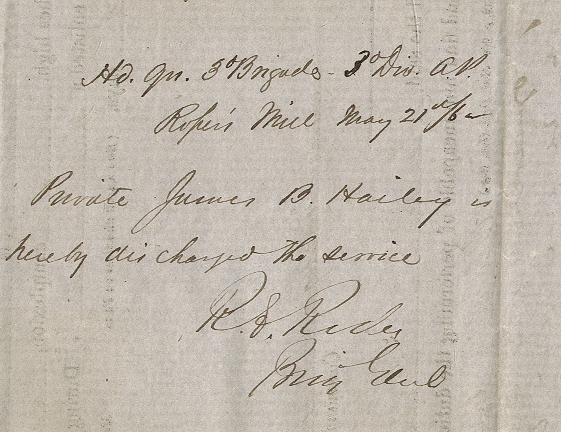 Hd. Qrs. 3d Brigade - 3d Div. A.P.
Roper's Mill May 21st /62
Private James B. Hailey is
hereby discharged the service
R. E. Rodes
Brig Genl